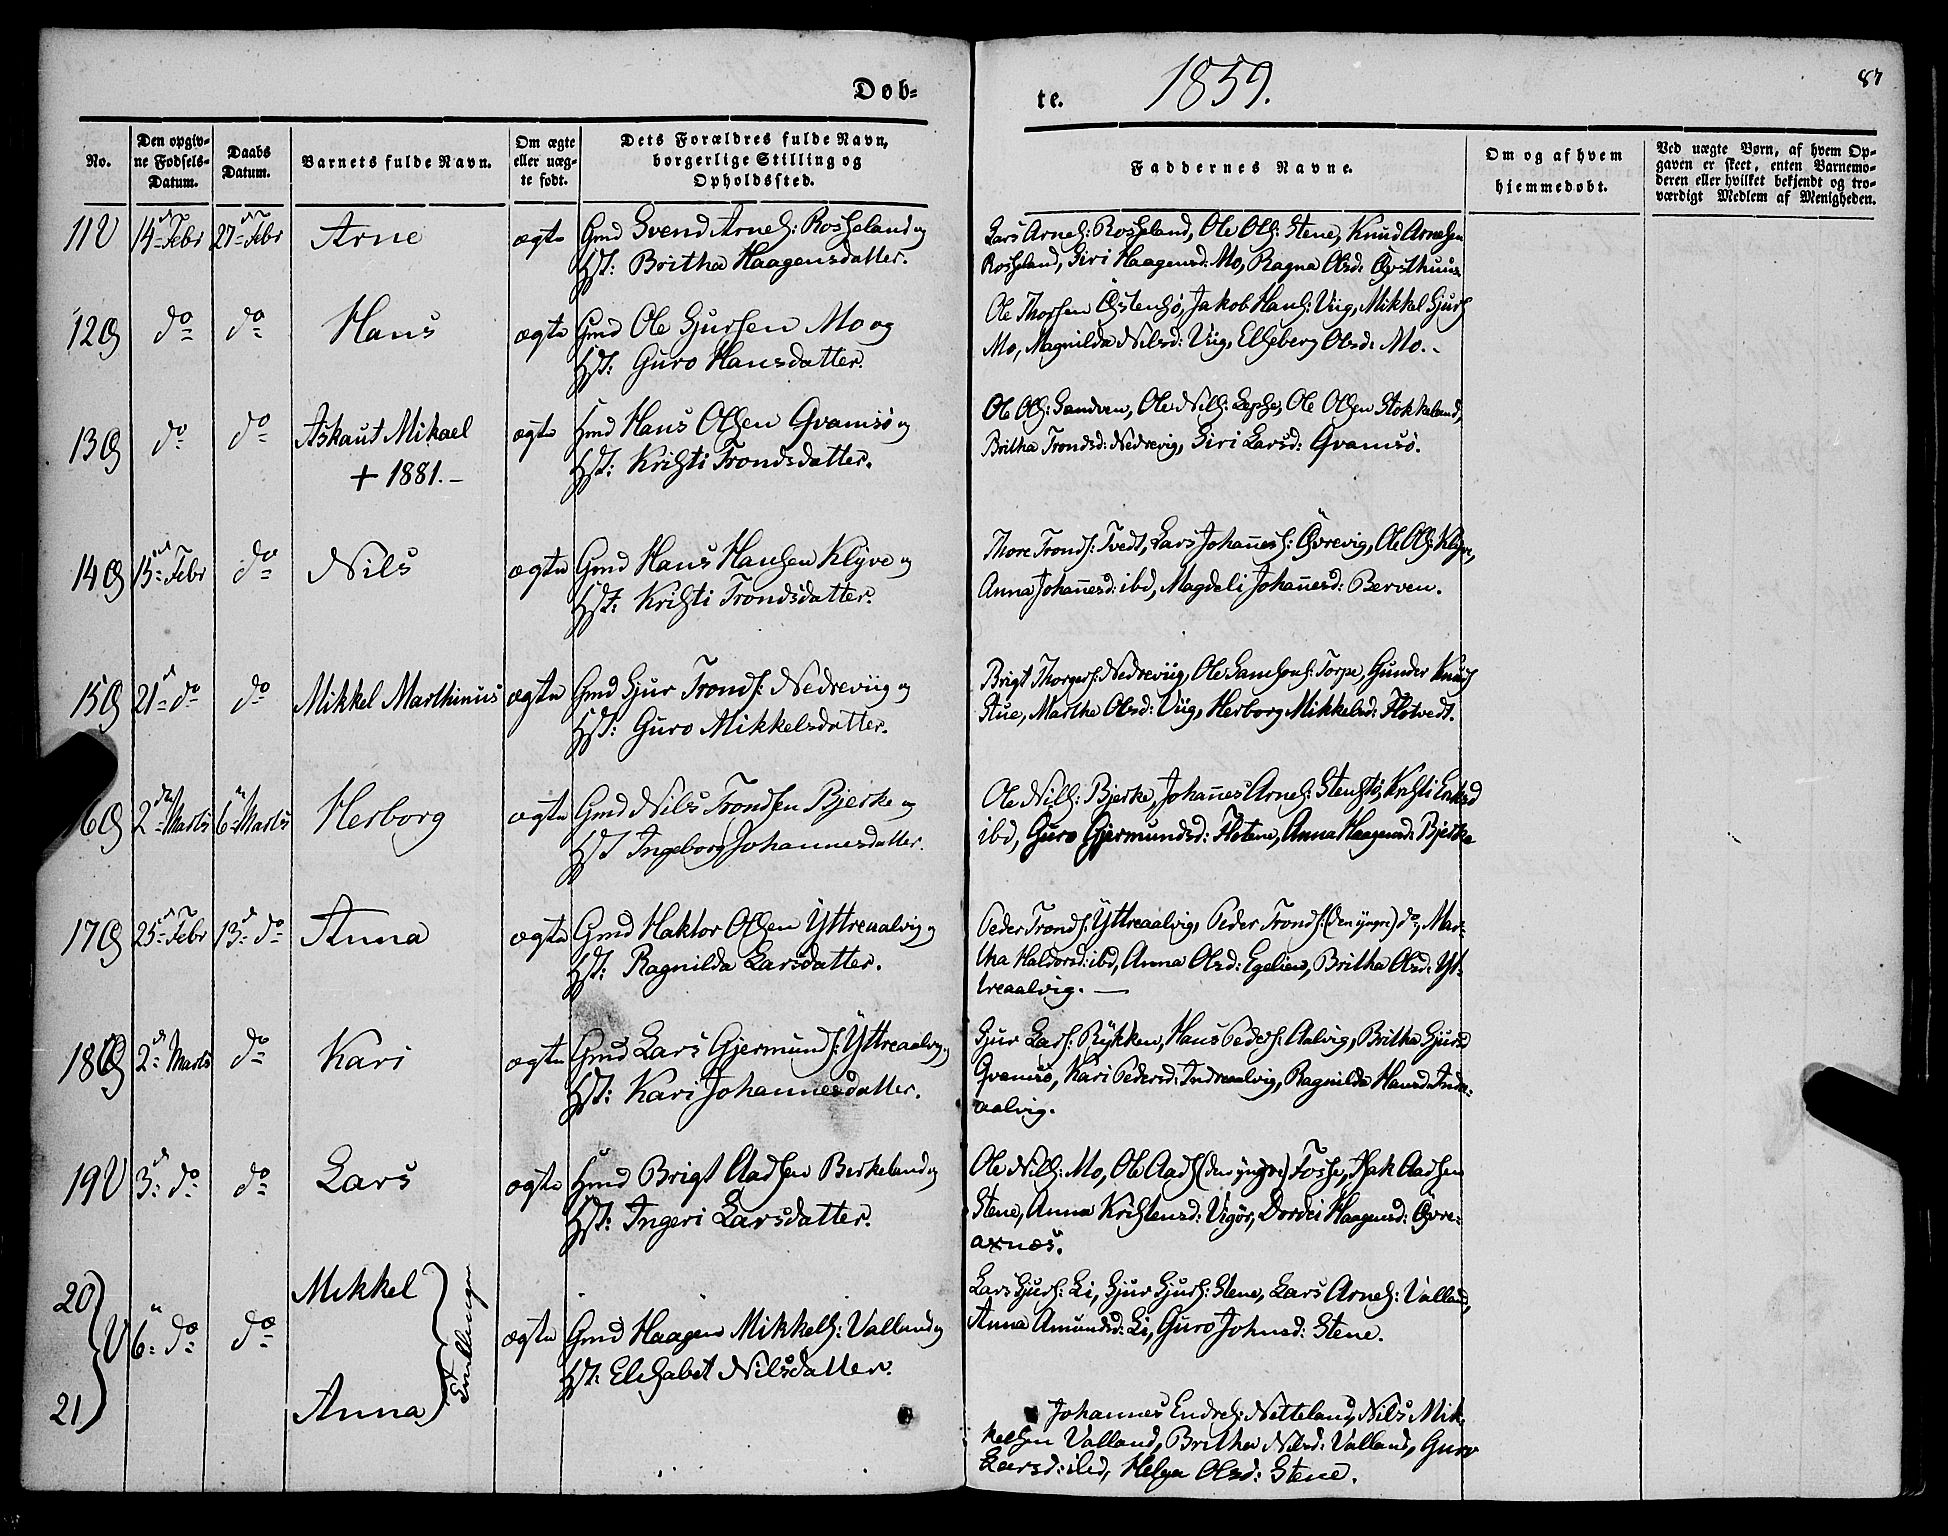 Døb-
te.
1859.
87
No.
Den opgiv-
ne Fødsels-
Datum.
Daabs
Datum.
Barnets fulde Navn.
Om ægte
eller uæg-
te født.
Dets Forældres fulde Navn,
borgerlige Stilling og
Opholdssted.
Faddernes Navne.
Om og af hvem
hjemmedøbt.
Ved uægte Børn, af hvem Op-
gaven er skeet, enten Barnemo-
deren eller hvilket bekjendt og tro-
værdigt Medlem af Menigheden.
11 V 14 Febr 27 Febr Arne ægte Gmd Svend Arnes: Rosseland og
Hst: Britha Haagensdatter.
Lars Arnes: Rosseland, Ole Ols: Stene, Knud Arnesen
Rosseland, Siri Haagensd: Mo, Ragna Olsd: Øvsthuus
12 do do Hans ægte Gmd Ole Gjursen Mo og
Hst: Guro Hansdatter.
Ole Thorsen Østensø, Jakob Hans: Viig, Mikkel Gjurs
Mo, Magnilda Nilsd: Viig, Elseberg Olsd: Mo.
13 do do Askaut Mikael ægte Hmd Hans Olsen Qvamsø og
+ 1881.- Hst: Kristi Trondsdatter.
Ole Ols: Sandven, Ole Nils: Lepse, Ole Olsen Stokkeland,
Britha Trondsd: Nedrevig, Siri Larsd: Qvamsø.
14 15 Febr do Nils ægte Gmd Hans Hansen Klyve og
Hst: Kristi Trondsdatter.
Thore Tronds: Tvedt, Lars Johañes: Øvrevig, Ole Ols: Klyve,
Anna Johañesd: ibd, Magdeli Johañesd: Berven.
15 21 do do Mikkel Marthinus ægte Gmd Gjur Tronds: Nedreviig og
Hst: Guro Mikkelsdatter.
Brigt Thorgers: Nedreviig, Ole Samsons: Torpe, Gunder Knuds
Stue, Marthe Olsd: Viig, Herborg Mikkelsd: Flotvedt.
6 2 Marts 6 Marts Herborg ægte Gmd Nils Trondsen Bjerke og
Hst Ingeborg Johannesdatter.
Ole Nils: Bjerke, Johañes Arnes: Stenstø, Kristi Eriksd
ibd, Guro Gjermundsd: Flotene, Anna Haagensd: Bjerke
17 25 Febr 13 do Anna ægte Gmd Haktor Olsen Yttreaalvig og
Hst: Ragnilda Larsdatter.
Peder Tronds: Yttreaalvig, Peder Tronds: (den yngre) do, Mar-
tha Haldorsd: ibd, Anna Olsd: Egelien, Britha Olsd: Yt-
treaalvig. —
18 2 Marts do Kari ægte Gmd Lars Gjermunds: Yttreaalvig og
Hst: Kari Johannesdatter.
Gjur Lars: Rykken, Hans Peders: Aalvig, Britha Gjursd
Qvamsø, Kari Pedersd: Indreaalvig, Ragnilda Hansd: Indre-
aalvig.
19 V 3 do do Lars ægte Hmd Brigt Aadsen Berkeland og
Hst: Ingeri Larsdatter.
Ole Nils: Mo, Ole Aads (den yngre) Fosse, Isak Aadsen
Stene, Anna Kristensd: Vigør, Dordei Haagensd: Øvre-
axnæs.
20 Mikkel
V 6 do do Tvillinger ægte Gmd Haagen Mikkels: Valland og
Hst: Elisabet Nilsdatter.
21 Anna
Lars Gjurs: Li, Gjur Gjurs: Stene, Lars Arnes: Valland,
Anna Amundsd: Li, Guro Johnsd: Stene.
Johannes Endres: Netteland, Nils Mik-
kelsen Valland, Britha Nilsd: Valland, Guro
Larsd: ibd, Helga Olsd: Stene.